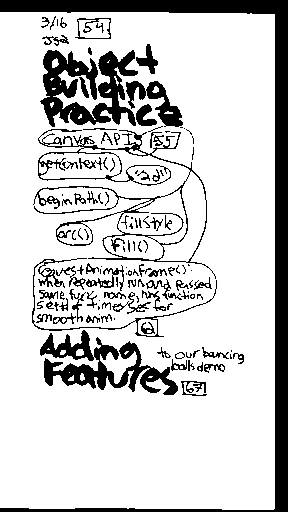 3/16 54
JS2
Object
Building
Practice
Canvas API 55
getContext()
"2d"
beginPath()
fillStyle
arc()
fill()
requestAnimationFrame():
when repeatedly run and passed
same func name, runs function
set # of times/sec for
smooth anim.
Adding
to our bouncing
balls demo
Features 67